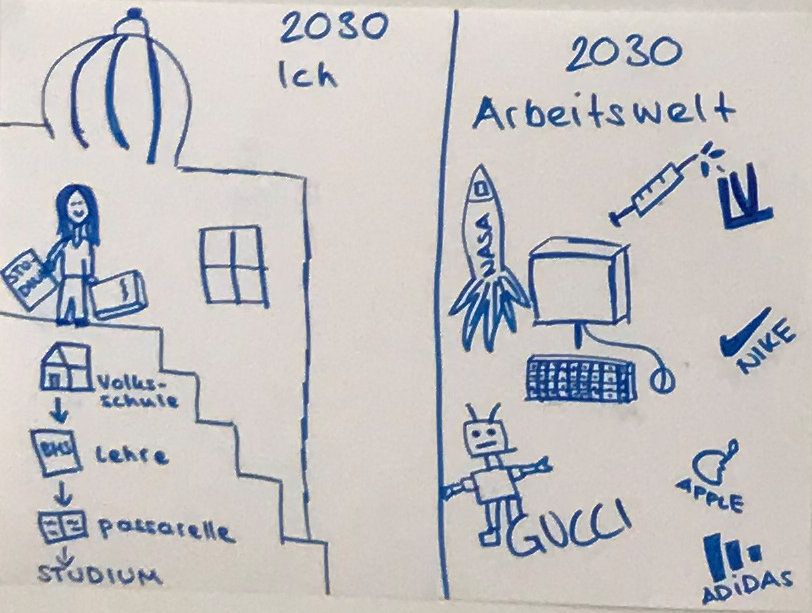 2030
Ich
STU
DIUM
Volks-
schule
BMS
Lehre
passarelle
STUDIUM
2030
Arbeitswelt
LV
NASA
NIKE
GUCCI
APPLE
ADiDAS